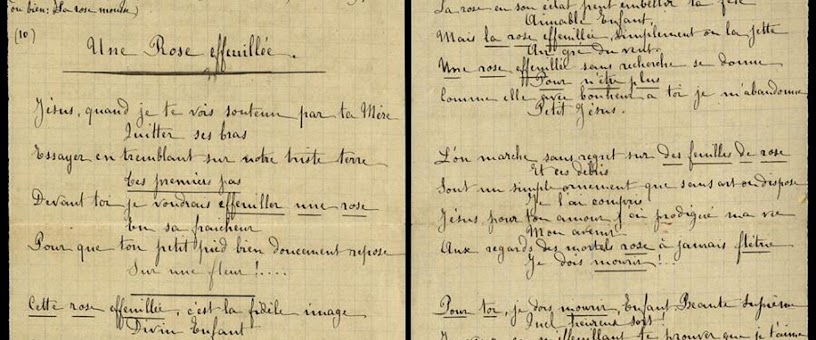 ou bien: (La rose mourn)
(10)
Une Rose effeuillée.
Jésus, quand je te vois soutenu par ta Mère
Quitter ses bras
Essayer en tremblant sur notre triste terre
Tes premiers pas
Devant toi je voudrais effeuiller une rose
En sa fraîcheur
Pour que ton petit pied bien doucement repose
Sur une fleur !....
Cette rose effeuillée, c'est la fidèle image
Divin Enfant
La rose en son éclat peut embellir ta fête
Aimable Enfant,
Mais la rose effeuillée, simplement on la jette
Au gré du vent
Une rose effeuillée sans recherche se donne
Pour n'être plus
Comme elle avec bonheur à toi je m'abandonne
Petit Jésus.
L'on marche sans regret sur des feuilles de rose
Et ces débris
Sont un simple ornement que sans art on dispose
Je l'ai compris
Jésus pour ton amour j'ai prodigué ma vie
Mon avenir
Aux regards des mortels rose à jamais flétrie
Je dois mourir !..
Pour toi, je dois mourir, Enfant, Beauté Suprême
Quel heureux sort !
effeuillant te prouver que je t'aime